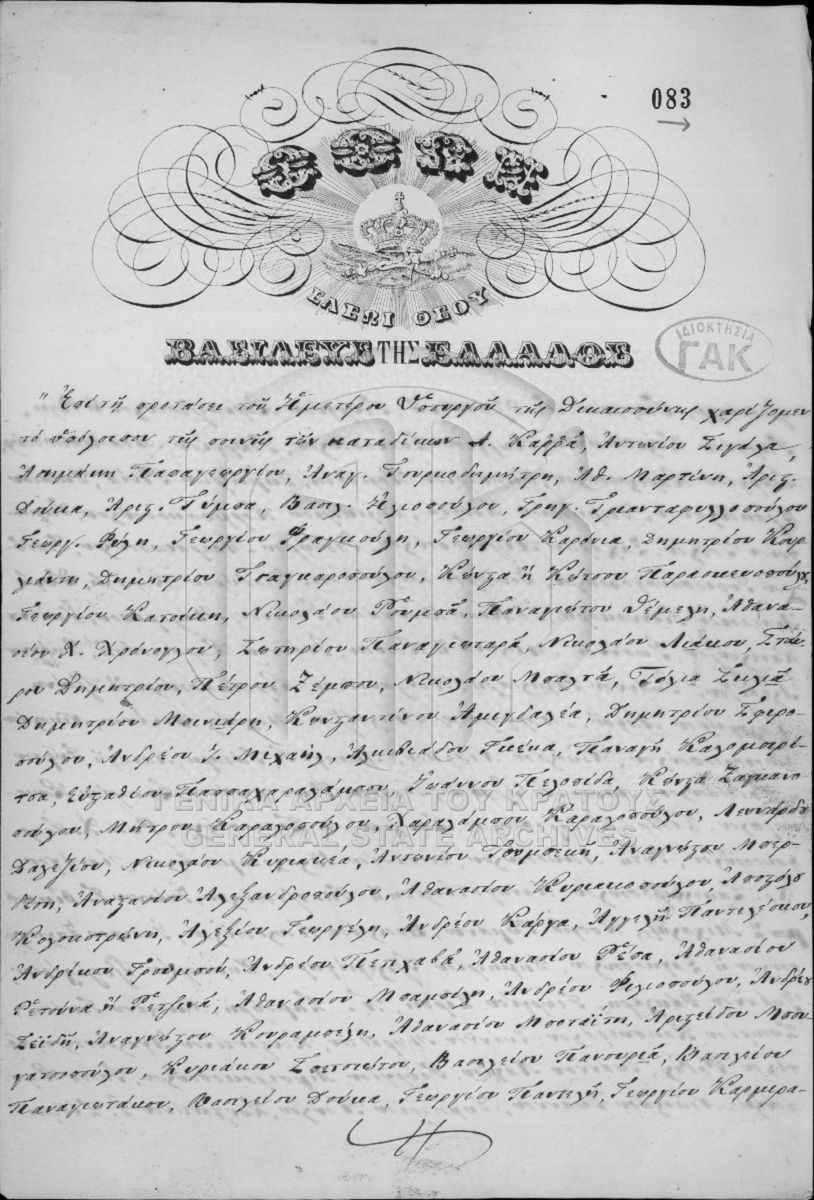 083
ΟΘΩΝ
ΕΛΕΩΙ ΘΕΟΥ
ΒΑΣΙΛΕΥΣ ΤΗΣ ΕΛΛΑΔΟΣ
ΙΔΙΟΚΤΗΣΙΑ
ΓΑΚ
Ἐπὶ τῇ προτάσει τοῦ Ἡμετέρου Ὑπουργοῦ τῆς Δικαιοσύνης χαρίζομεν
τὸ ὑπόλοιπον τῆς ποινῆς τῶν καταδίκων Α. Καββᾶ, Ἀντωνίου Σιγάλα,
Ἀσημάκη Παπαγεωργίου, Ἀναγ. Τουρκοδημήτρη, Ἀθ. Μαρτίνη, Ἀριστ.
Δούκα, Ἀριστ. Τόμπα, Βασιλ. Ἠλιοπούλου, Γρηγ. Τριανταφυλλοπούλου
Γεωργ. Φίλη, Γεωργίου Φραγκούλη, Γεωργίου Καρόνια, Δημητρίου Κουρ
λιάντη, Δημητρίου Τσαγκαροπούλου, Κώνστα ἢ Κώτσου Παρασκευοπούλου,
Γεωργίου Κατσίκη, Νικολάου Ῥουμπᾶ, Παναγιώτου Θέμελη, Ἀθανα-
σίου Χ. Χρόνογλου, Σωτηρίου Παναγιωταρᾶ, Νικολάου Λιάκου, Σταύ-
ρου Δημητρίου, Πέτρου Ζέμπου, Νικολάου Μπαλτᾶ, Τόλια Σκλιᾶ
Δημητρίου Μπινιάρη, Κωνσταντίνου Ἀμυγδαλέα, Δημητρίου Σφερο-
πούλου, Ἀνδρέου Ι. Μιχαήλ, Ἀλκιβιάδου Γκέκα, Παναγῆ Καλομοιρί-
τσα, Εὐσταθίου Παπαχαραλάμπου, Ἰωάννου Πελοπίδα, Κώνστα Ζαγκανο
πούλου, Μήτρου Καραλοπούλου, Χαραλάμπου Καραλοπούλου, Λεονάρδου
Δαλεζίου, Νικολάου Κυριακέα, Ἀντωνίου Τουμπεκῆ, Ἀναγνώστου Μπερ-
δέση, Ἀναστασίου Ἀλεξανδροπούλου, Ἀθανασίου Κυριακοπούλου, Ἀποστόλου
Κολοκοτρώνη, Ἀλεξίου Γεωργέλη, Ἀνδρέου Κάργα, Ἀγγελῆ Παντελέσκου,
Ἀνδρίκου Γρουμποῦ, Ἀνδρέου Πεπχαβᾶ, Ἀθανασίου Ῥέπα, Ἀθανασίου
Ῥετούνα ἢ Ῥετζινᾶ, Ἀθανασίου Μπαμπίλη, Ἀνδρέου Φιλιοπούλου, Ἀνδρέου
Σεϊδῆ, Ἀναγνώστου Κουραμπέλη, Ἀθανασίου Μοσταΐτη, Ἀριστείδου Μπου
γατσοπούλου, Κυριάκου Σπετσιώτου, Βασιλείου Πανουριᾶ, Βασιλείου
Παναγιωτάκου, Βασιλείου Δούκα, Γεωργίου Παντελῆ, Γεωργίου Καρμερα-
ΓΕΝΙΚΑ ΑΡΧΕΙΑ ΤΟΥ ΚΡΑΤΟΥΣ
GENERAL STATE ARCHIVES